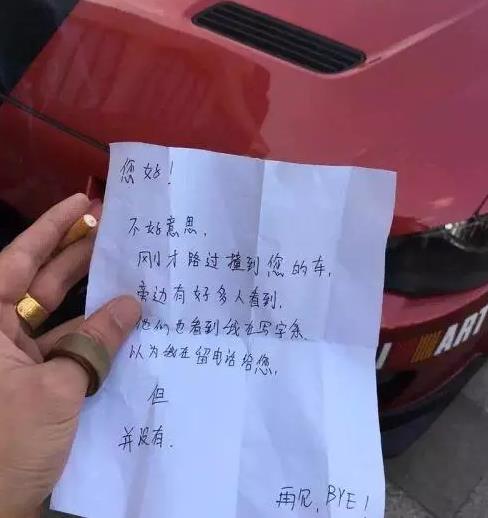 您好！
不好意思，
刚才路过撞到您的车，
旁边有好多人看到，
他们也看到我在写字条，
以为我在留电话给您，
但
并没有．
再见，BYE！
ART